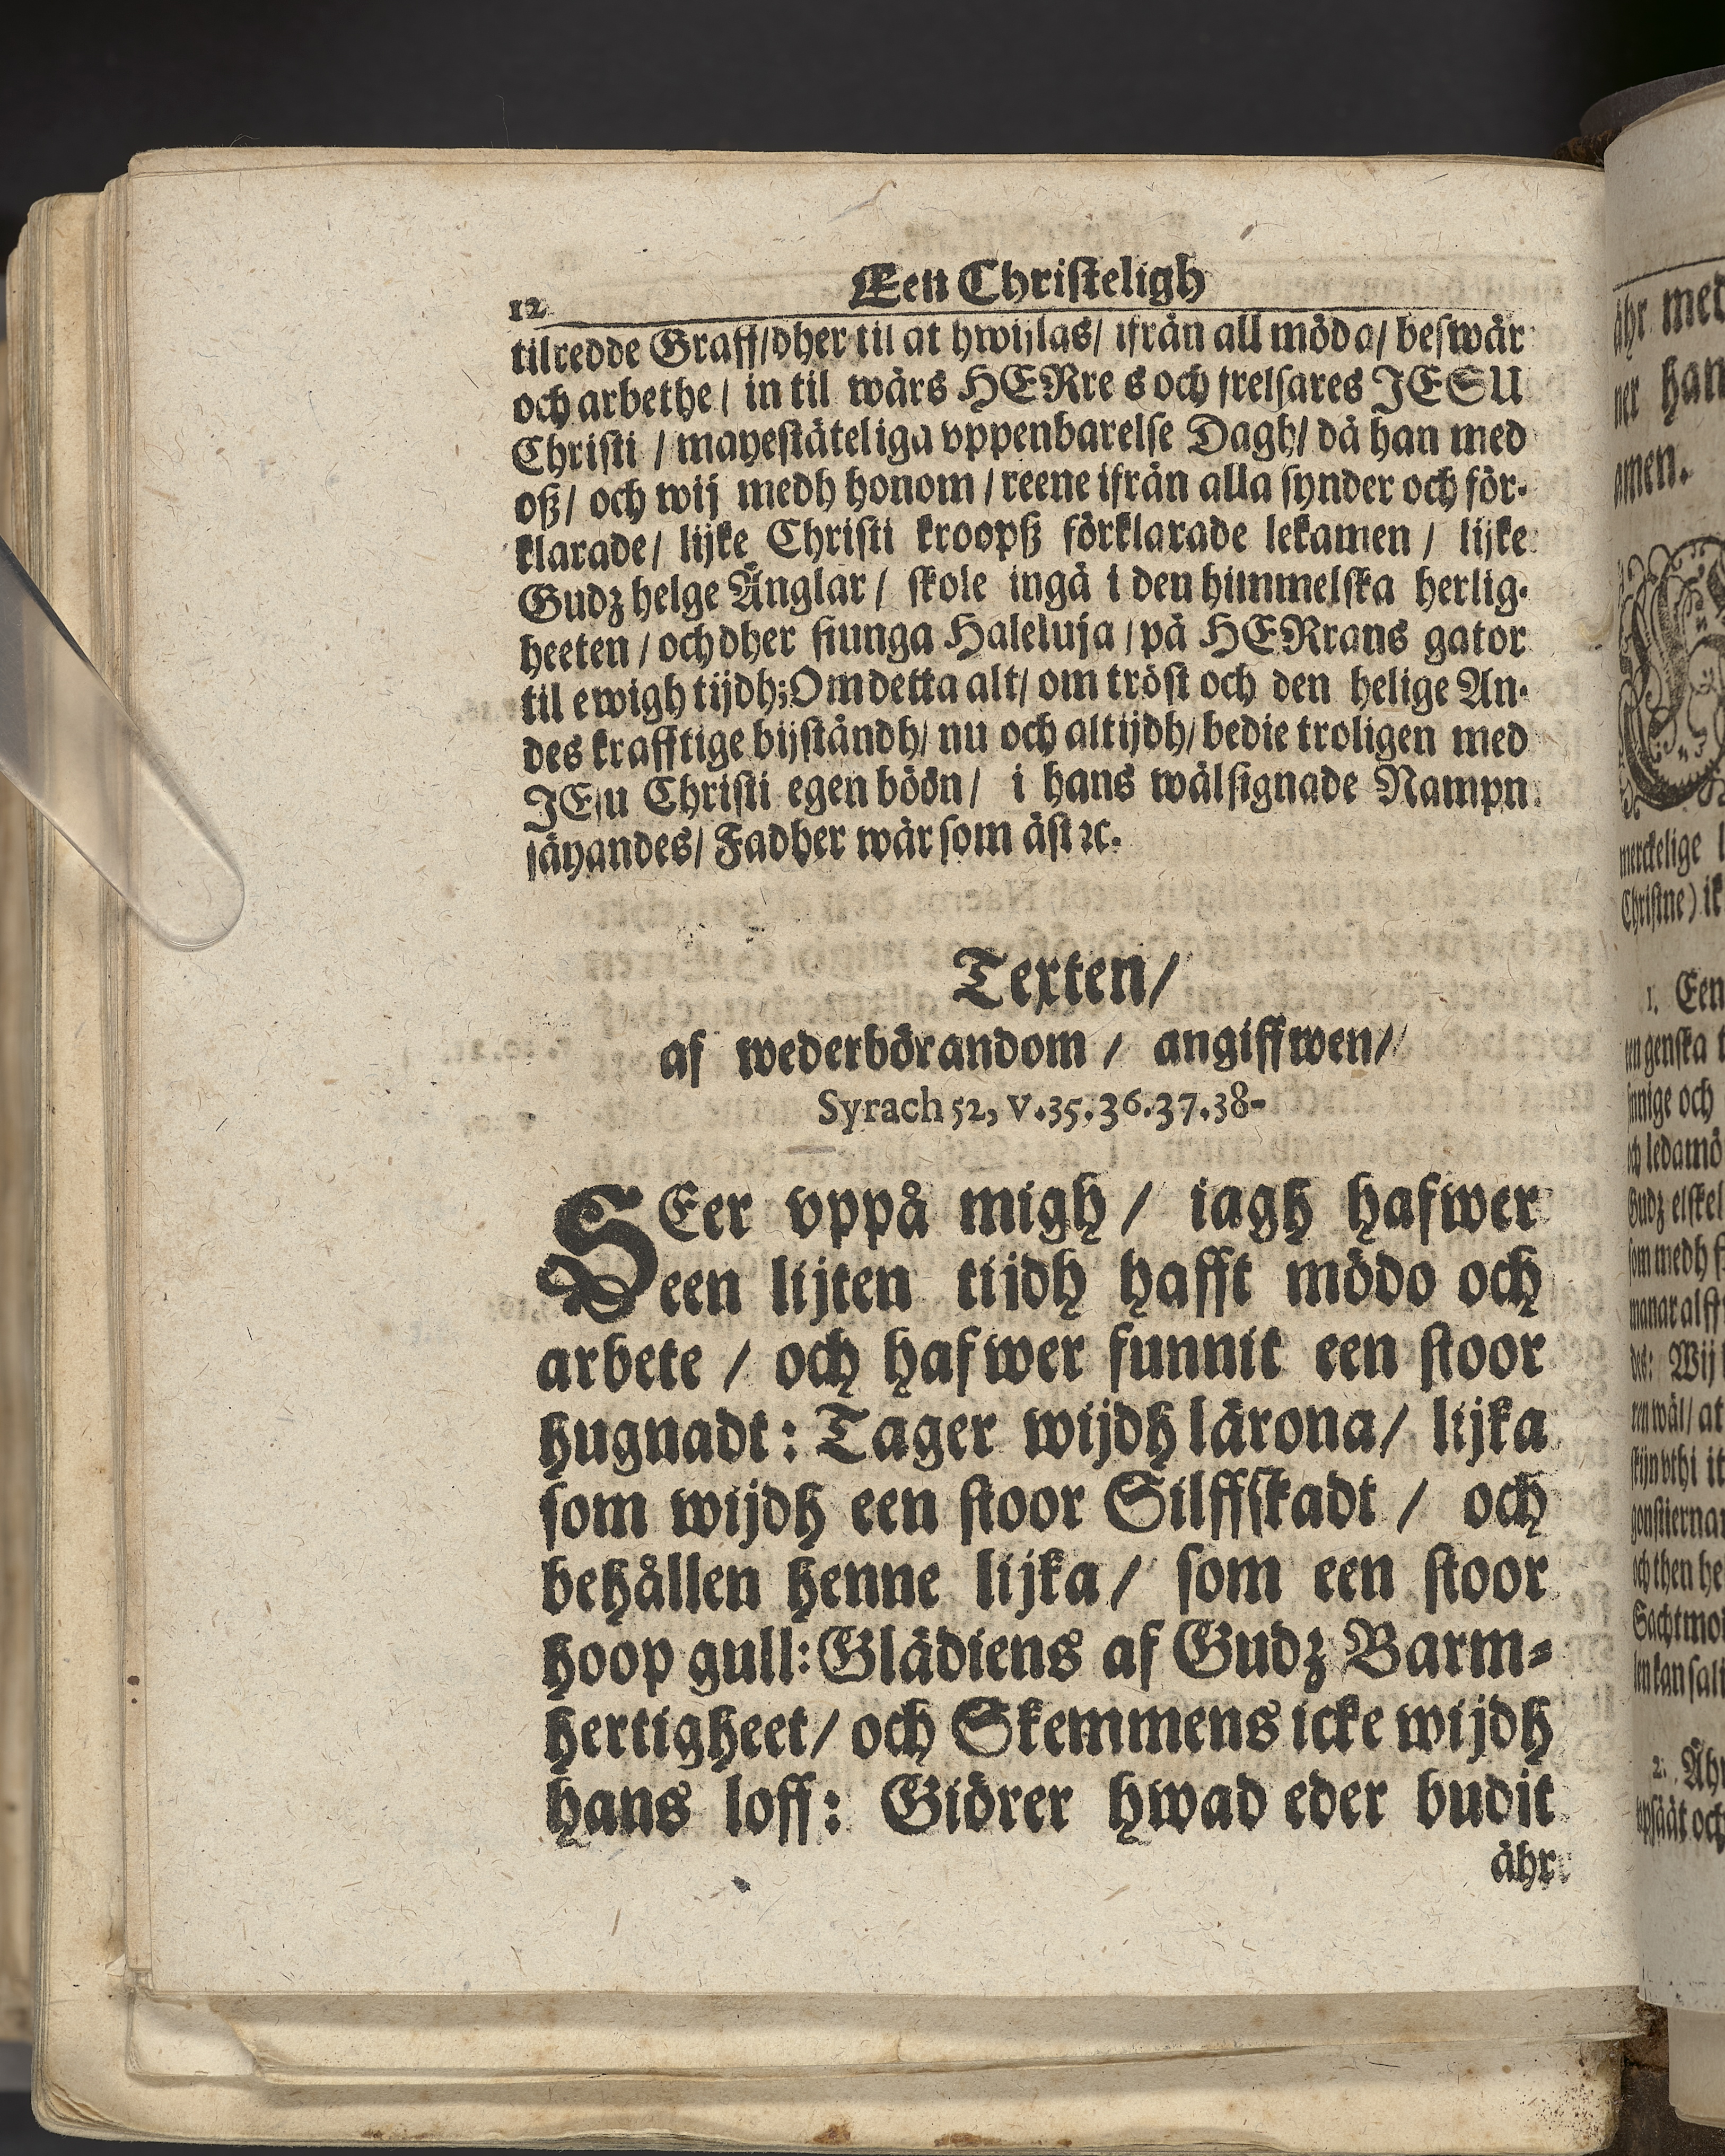 12
Een Christeligh
tilredde Graff/dher til at hwijlas/ ifrån all möda/ beswär
och arbethe/ in til wårs HERre s och frelsares JESU
Christi / mayestäteliga vppenbarelse Dagh/ då han med
oß/ och wij medh honom / reene ifrån alla synder och för-
klarade/ lijke Christi kroopß förklarade lekamen / lijke
Gudz helge Änglar / skole ingå i den himmelska herlig-
heeten / och dher siunga Haleluja / på HERrans gator
til ewigh tijdh; Om detta alt/ om tröst och den helige An-
des krafftige bijståndh/ nu och altijdh/ bedie troligen med
JEsu Christi egen böön/ i hans wälsignade Nampn
säyandes/ Fadher wår som äst ꝛc.
Texten/
af wederbörandom / angiffwen/
Syrach 52, v.35.36.37.38-
SEer vppå migh / iagh hafwer
een lijten tijdh hafft mödo och
arbete / och hafwer funnit een stoor
hugnadt: Tager wijdh lärona/ lijka
som wijdh een stoor Silffskadt / och
behållen henne lijka / som een stoor
hoop gull: Glädiens af Gudz Barm-
hertigheet/ och Skemmens icke wijdh
hans loff: Giörer hwad eder budit
ähr
ähr med
ner han
amen.
merckelige
Christne) ik
1. Een
ungenska
innige och
och ledamö
Gudz elskel
som medh
manar alst
des: Wij
ren wäl/ at
skijn vthi it
gonstiernan
och then he
Sachtmo
len kan sali
2. Ähr
vpsåt och